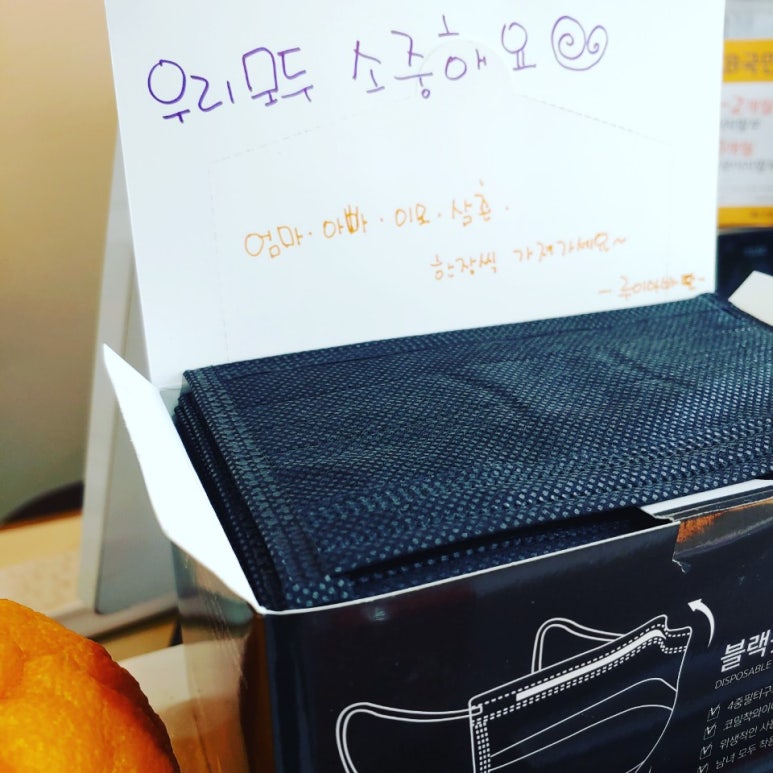 우리모두 소중해요
엄마·아빠·이모·삼촌·
한장씩 가져가세요~
블랙
DISPOSABLE
4중필터구
코밀착와이
위생적인 사
남녀 모두 착용